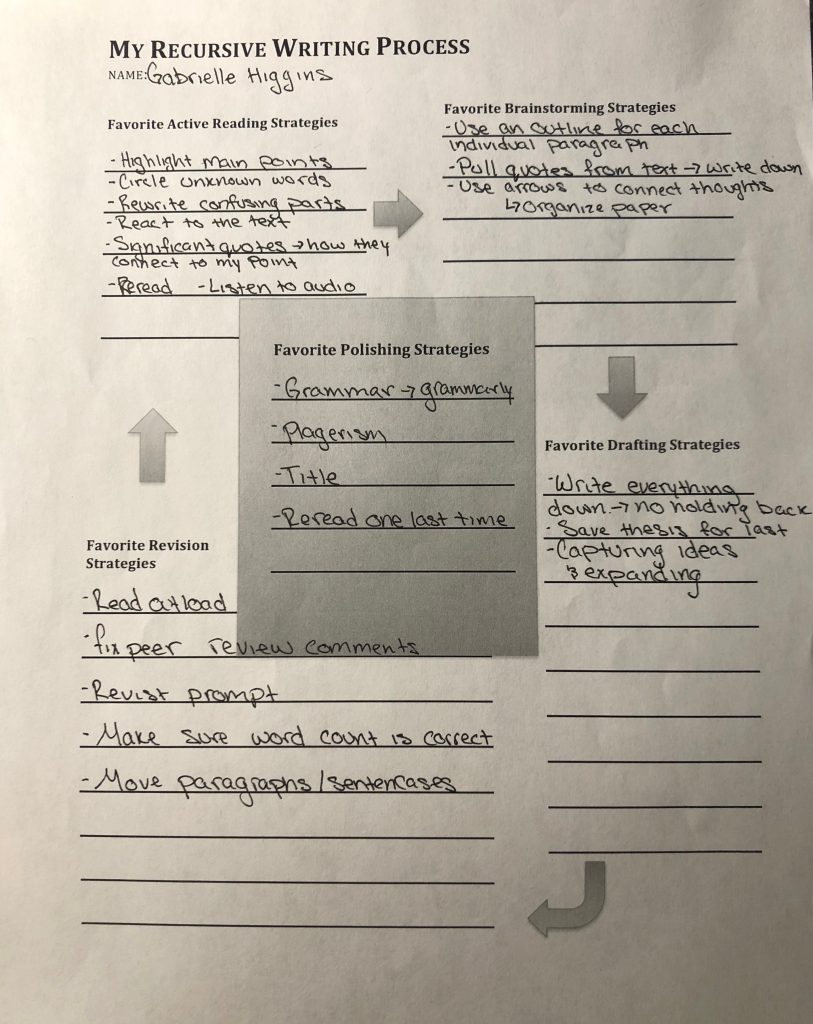 MY RECURSIVE WRITING PROCESS
NAME: Gabrielle Higgins
Favorite Active Reading Strategies
- Highlight main points
- Circle unknown words
- Rewrite confusing parts
- React to the text
- Significant quotes → how they
connect to my point
- Reread - Listen to audio
Favorite Brainstorming Strategies
- Use an outline for each
individual paragraph
- Pull quotes from text → write down
- Use arrows to connect thoughts
↳ Organize paper
Favorite Polishing Strategies
- Grammar → grammarly
- Plagerism
- Title
- Reread one last time
Favorite Drafting Strategies
- Write everything
down → no holding back
- Save thesis for last
- Capturing ideas
& expanding
Favorite Revision
Strategies
- Read outload
- fix peer review comments
- Revist prompt
- Make sure word count is correct
- Move paragraphs/sentencases